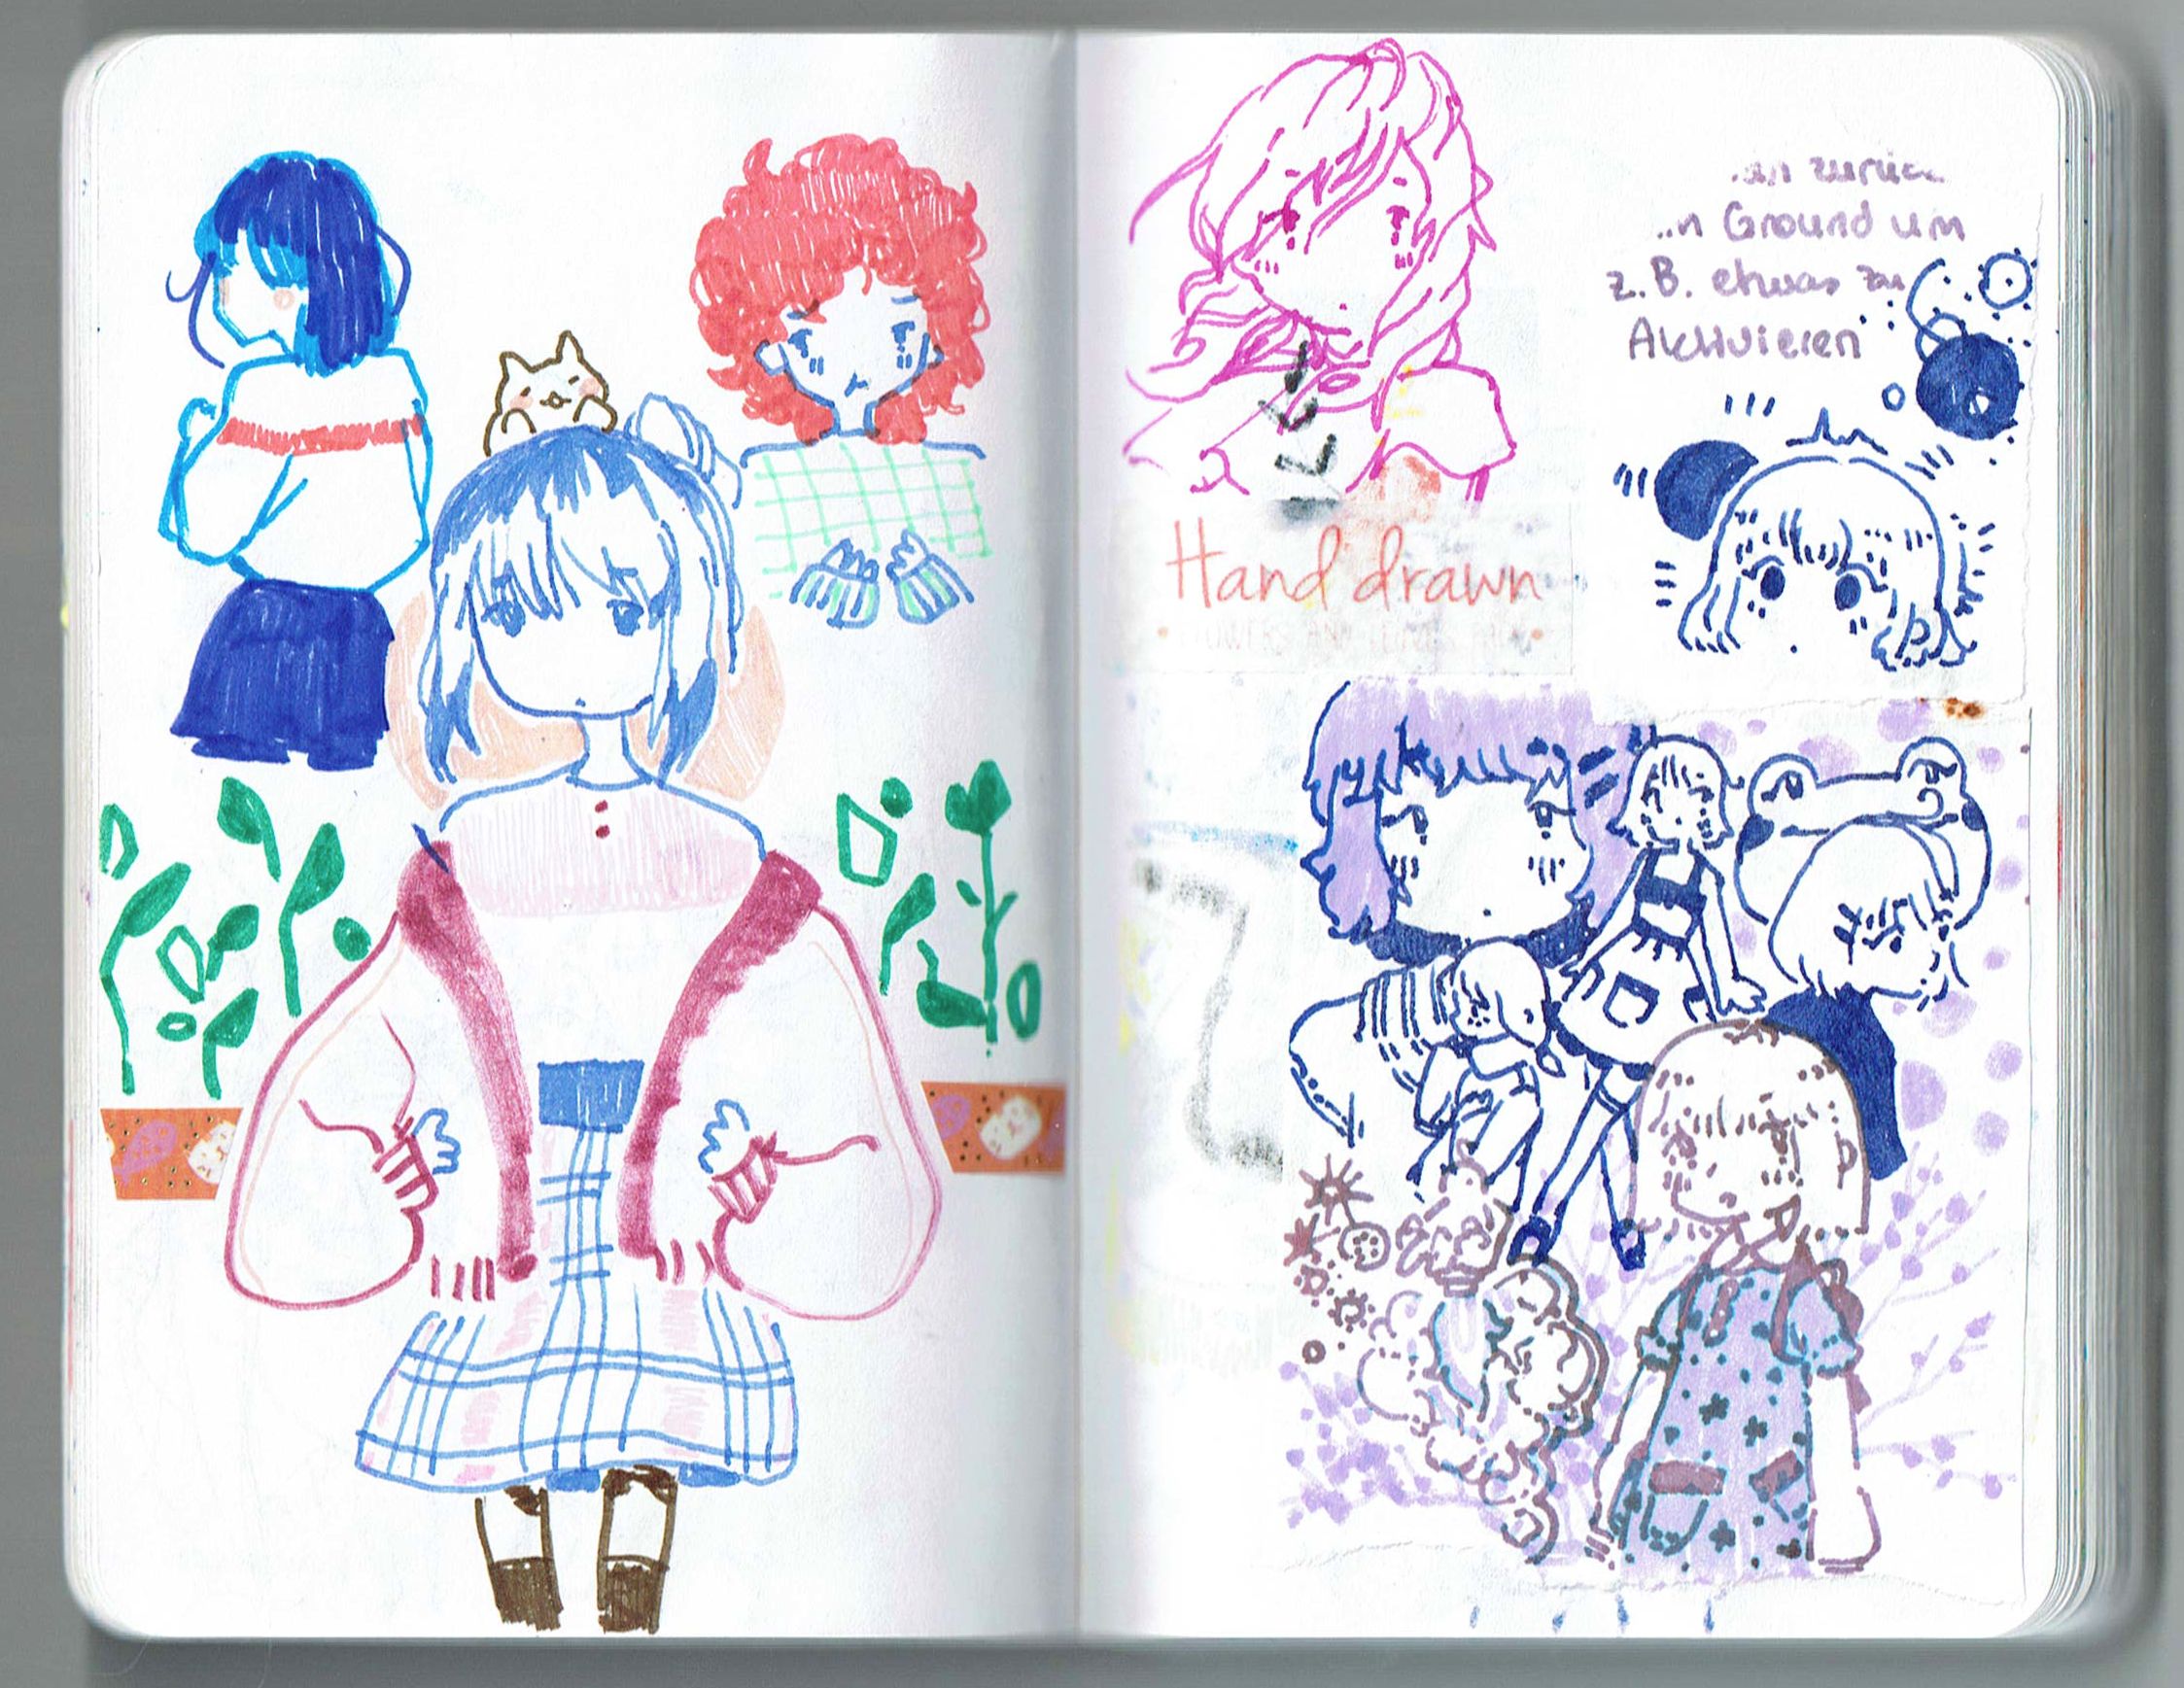 zurück
Ground um
z.B. etwas zu
Aktivieren
Hand drawn
FLOWERS AND LEAVES PACK